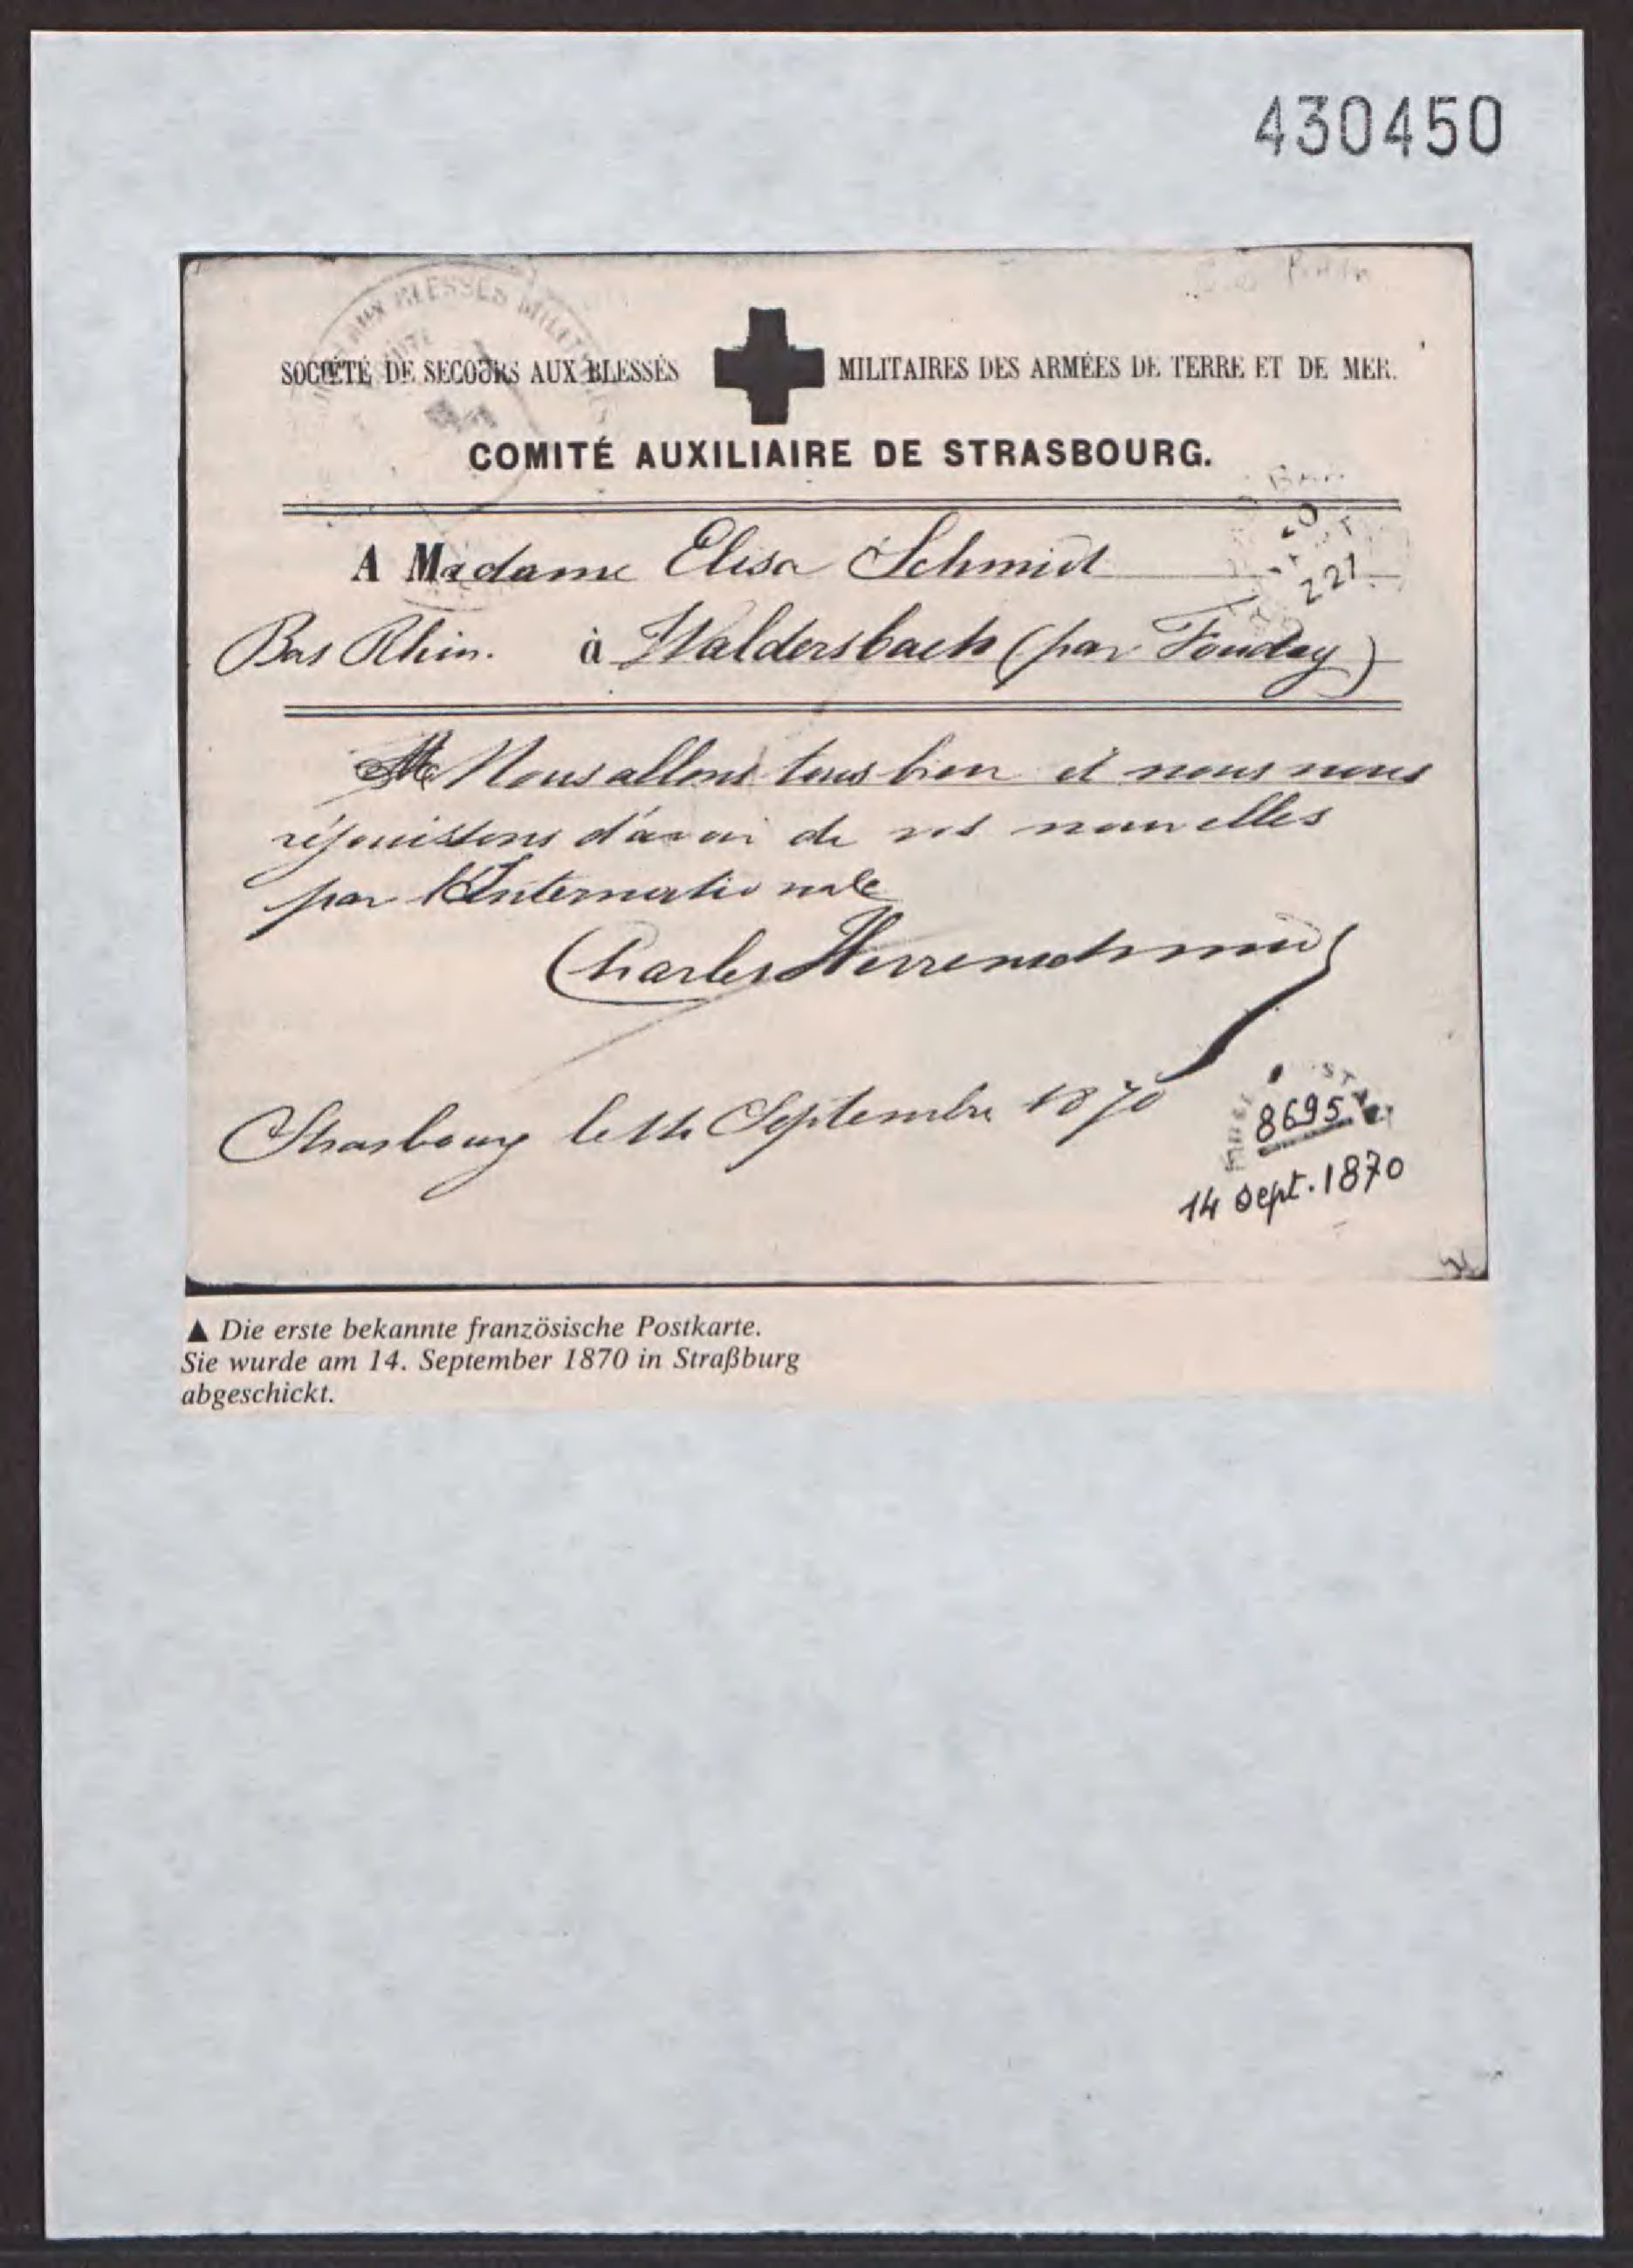 430450
BLESSÉS MILIT
SOCIÉTÉ DE SECOURS AUX BLESSÉS MILITAIRES DES ARMÉES DE TERRE ET DE MER.
COMITÉ AUXILIAIRE DE STRASBOURG.
A Madame Elisa Schmidt
221
Bas Rhin. à Waldersbach (par Fouday)
Nous allons tous bien et nous nous
réjouissons d'avoir de vos nouvelles
par l'Internationale
Charles Herrenschmidt
Strasbourg le 14 Septembre 1870
8695
14 sept. 1870
▲ Die erste bekannte französische Postkarte.
Sie wurde am 14. September 1870 in Straßburg
abgeschickt.